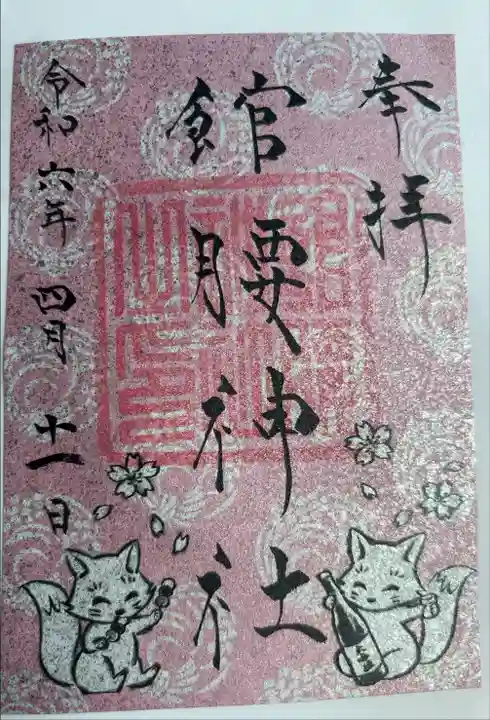 奉拝
館腰神社
令和六年 四月 十一日